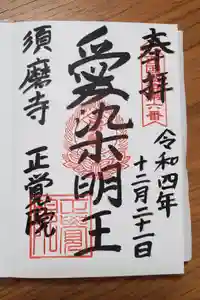 奉拝
令和四年
十二月二十一日
愛染明王
須磨寺
正覚院